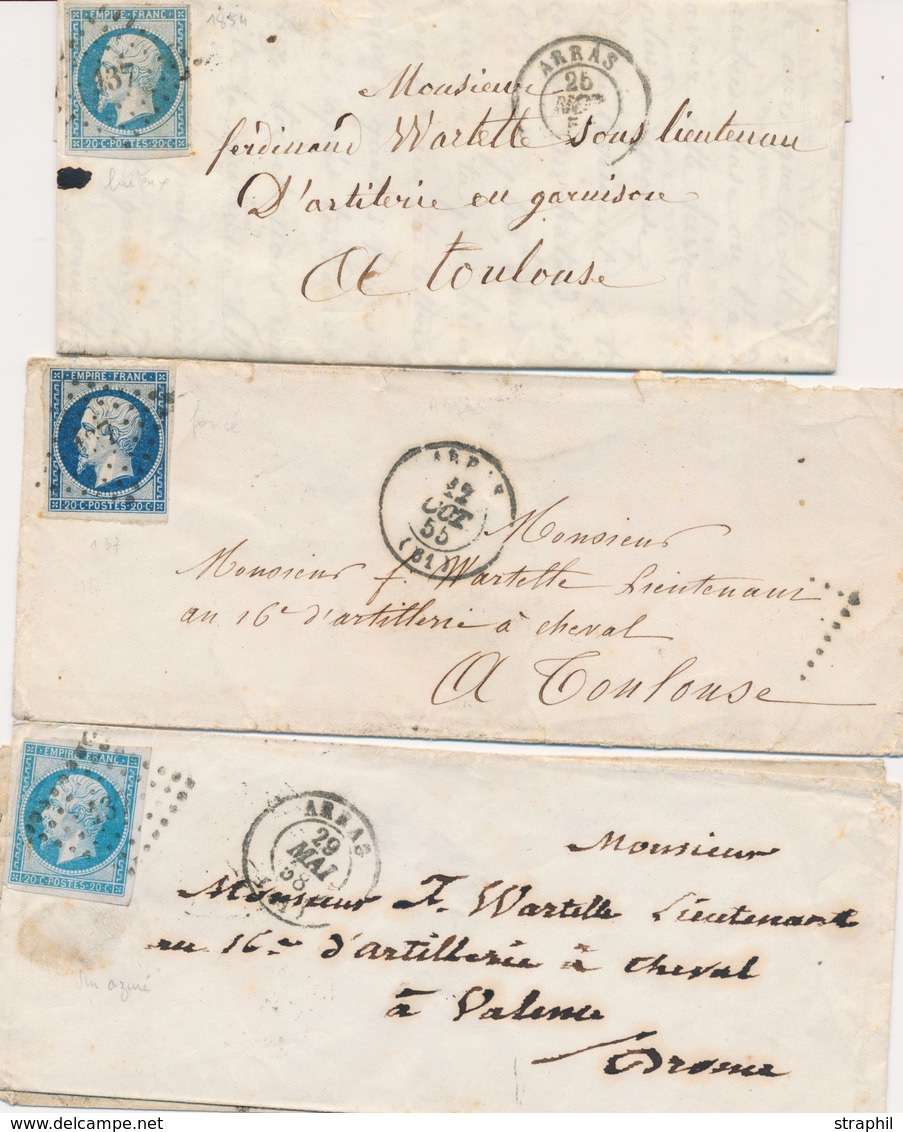 1854
EMPIRE · FRANC
137
20 C · POSTES · 20 C
ARRAS
25
Monsieur
ferdinand Wartelle sous lieutenan
D'artilerie en garnison
A toulouse
EMPIRE · FRANC
137
20 C · POSTES · 20 C
foncé
137
12
OCT
55
(61)
Monsieur
Monsieur f. Wartelle Lieutenant
au 16e d'artillerie à cheval
A Toulouse
EMPIRE · FRANC
20 C · POSTES · 20 C
ARRAS
29
MAI
58
Monsieur
Monsieur F. Wartelle Lieutenant
au 16me d'artillerie à cheval
à Valence
Drome
sur azuré
straphil